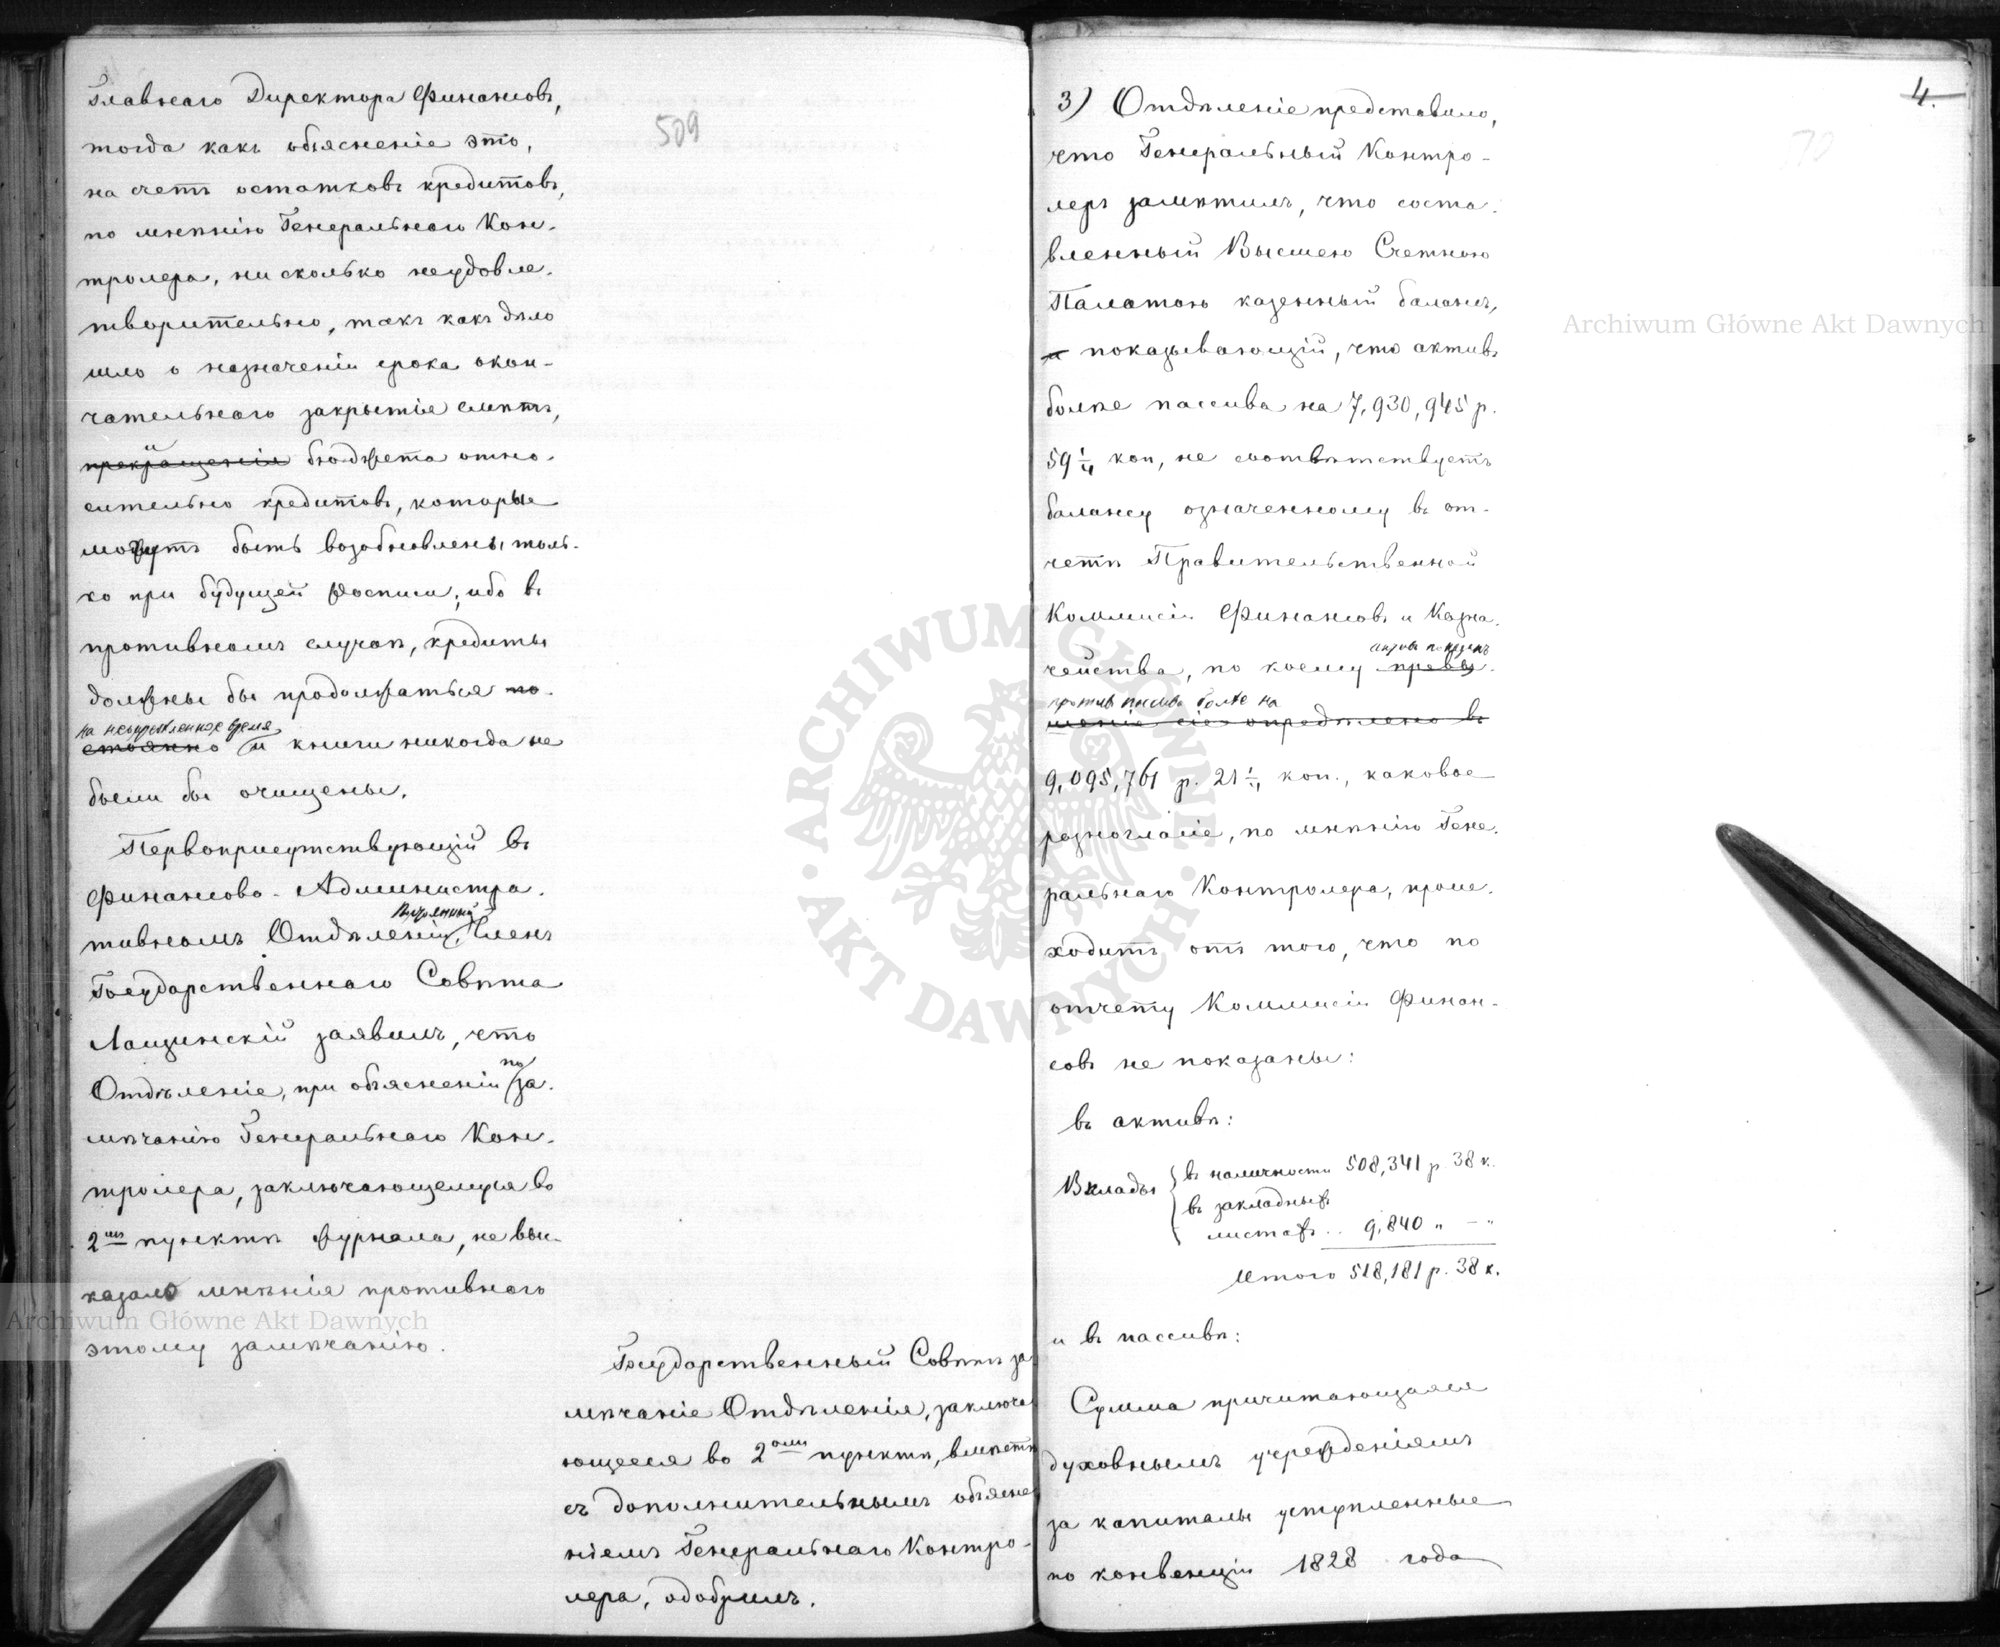 Главнаго Директора Финансовъ,
тогда какъ объясненіе это,
на счетъ остатковъ кредитовъ,
по мнѣнію Генеральнаго Кон-
тролера, нисколько неудовле-
творительно, такъ какъ дѣло
шло о назначеніи срока окон-
чательнаго закрытія смѣтъ,
прекращенія бюджета отно-
сительно кредитовъ, которые
могутъ быть возобновлены толь-
ко при будущей росписи; ибо въ
противномъ случаѣ, кредиты
должны бы продолжаться по-
на неопредѣленное время
стоянно и книги никогда не
были бы очищены.
Первоприсутствующій въ
Финансово-Администра-
тивномъ Отдѣленіи, Членъ
Государственнаго Совѣта
Лащинскій заявилъ, что
Отдѣленіе, при объясненіи по за-
мѣчанію Генеральнаго Кон-
тролера, заключающемуся во
2мъ пунктѣ журнала, не вы-
казало мнѣнія противнаго
этому замѣчанію.
509
Государственный Совѣтъ за
мѣчаніе Отдѣленія, заключа
ющееся во 2омъ пунктѣ, вмѣстѣ
съ дополнительнымъ объясне
ніемъ Генеральнаго Контро-
лера, одобрилъ.
4.
70
3) Отдѣленіе представило,
что Генеральный Контро-
леръ замѣтилъ, что соста-
вленный Высшею Счетною
Палатою казенный балансъ,
и показывающій, что активъ
болѣе пассива на 7,930,945 р.
59 1/4 коп, не соотвѣтствуетъ
балансу означенному въ от-
четѣ Правительственной
Коммисіи Финансовъ и Казна-
чейства, по коему превы-
активъ показанъ
противъ пассива болѣе на
шеніе сіе опредѣлено въ
9,095,761 р. 21 1/4 коп., каковое
разногласіе, по мнѣнію Гене-
ральнаго Контролера, проис-
ходитъ отъ того, что по
отчету Коммисіи Финан-
совъ не показаны:
въ активѣ:
Вклады въ наличности 508,341 р. 38 к.
въ закладныхъ
листахъ .. 9,840 „ – „
Итого 518,181 р. 38 к.
и въ пассивѣ:
Сумма причитающаяся
духовнымъ учрежденіямъ
за капиталы уступленные
по конвенціи 1828 года
Archiwum Główne Akt Dawnych
Archiwum Główne Akt Dawnych
ARCHIWUM GŁÓWNE · AKT DAWNYCH ·